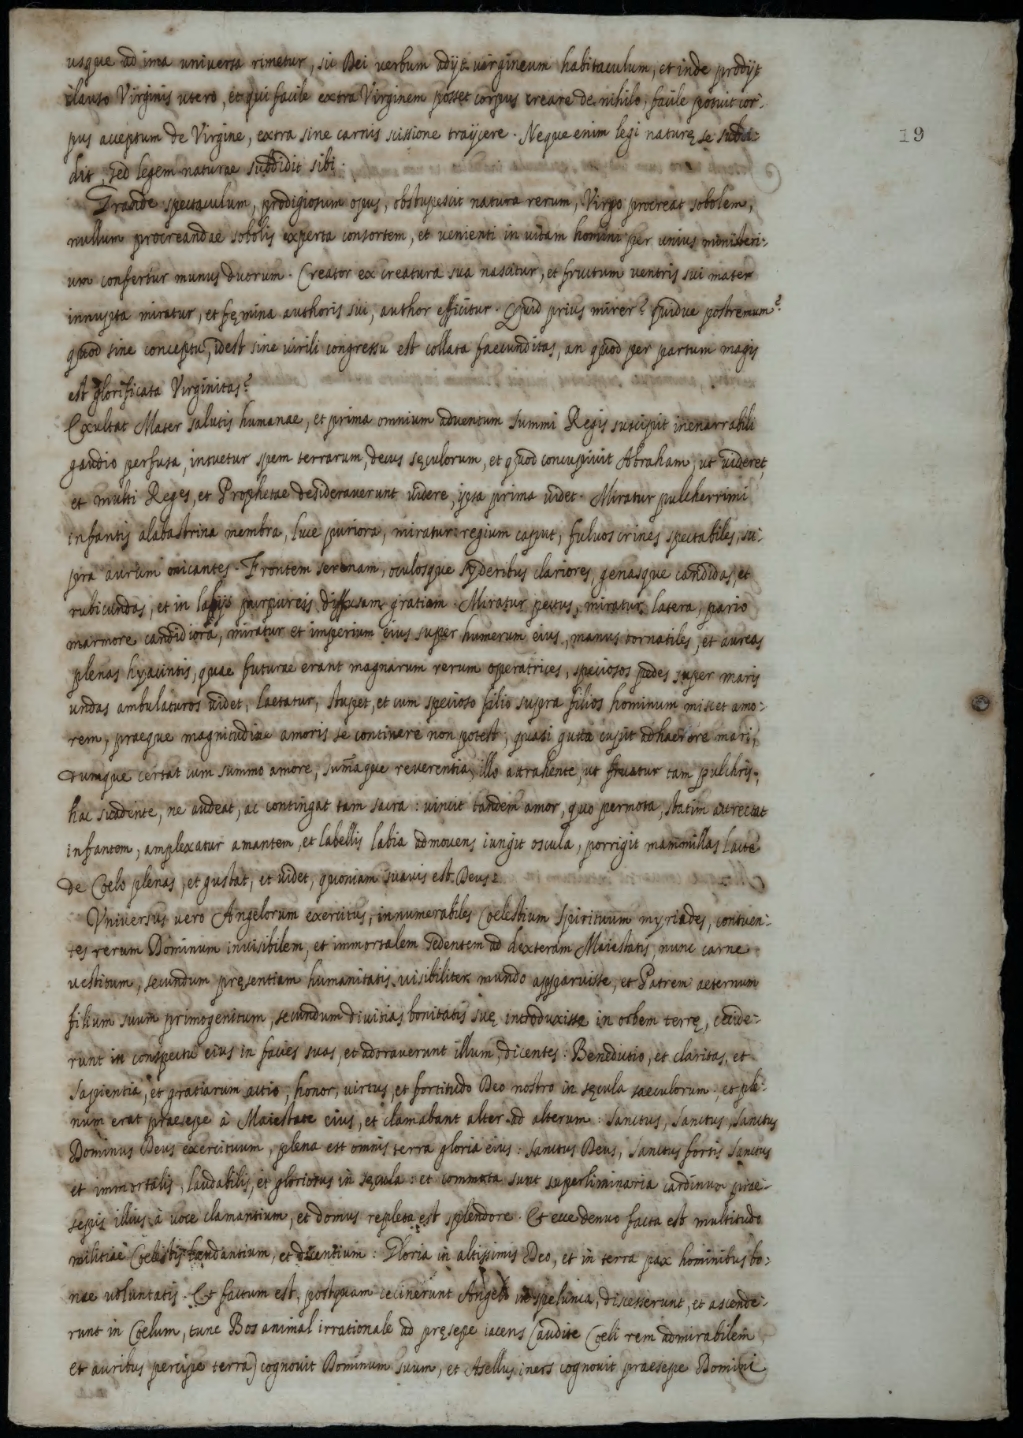 usque ad ima universa rimetur, sic Dei verbum adijt virgineum habitaculum, et inde prodijt
clauso Virginis utero, et qui facile extra Virginem posset corpus creare de nihilo, facile potuit cor-
pus acceptum de Virgine, extra sine carnis scissione traijcere. Neque enim legi naturę se subdi-
dit, sed legem naturae subdidit sibi.
19
Grande spectaculum, prodigiosum opus, obstupescit natura rerum, Virgo procreat sobolem,
nullum procreandae sobolis experta consortem, et venienti in vitam homini per unius ministeri-
um confertur munus duorum. Creator ex creatura sua nascitur, et fructum ventris sui mater
innupta miratur, et fęmina authoris sui, author efficitur. Quid prius mirer? quidue postremum?
quod sine conceptu, idest sine virili congressu est collata faecunditas, an quod per partum magis
est glorificata Virginitas?
Exultat Mater salutis humanae, et prima omnium adventum summi Regis suscipit inenarrabili
gaudio perfusa, intuetur spem terrarum, decus sęculorum, et quod concupivit Abraham, ut videret,
et multi Reges, et Prophetae desideraverunt videre, ipsa prima videt. Miratur pulcherrimi
infantis alabastrina membra, luce puriora, miratur regium caput, fulvos crines spectabiles, su-
pra aurum micantes. Frontem serenam, oculosque syderibus clariores, genasque candidas, et
rubicundas, et in labijs purpureis diffusam gratiam. Miratur pectus, miratur latera, pario
marmore candidiora, miratur et imperium eius super humerum eius, manus tornatiles, et aureas
plenas hyacintis, quae futurae erant magnarum rerum operatrices, speciosos pedes super maris
undas ambulaturos videt, laetatur, stupet, et cum specioso filio supra filios hominum miscet amo-
rem, praeque magnitudine amoris se continere non potest, quasi gutta cupit adhaerere mari,
cumque certat cum summo amore, sum̃aque reverentia, illo attrahente, ut fruatur tam pulchris,
hac suadente, ne audeat, ac contingat tam sacra: vincit tandem amor, quo permota, statim attrectat
infantem, amplexatur amantem, et labellis labia admovens iungit oscula, porrigit mammillas lacte
de Coelo plenas, et gustat, et videt, quoniam suavis est Deus:
Vniversus vero Angelorum exercitus, innumerabiles Coelestium spirituum myriades, contuen-
tes rerum Dominum invisibilem, et immortalem sedentem ad dexteram Maiestatis, nunc carne
vestitum, secundum pręsentiam humanitatis visibiliter mundo apparuisse, et Patrem aeternum
filium suum primogenitum, secundum divitias bonitatis suę introduxisse in orbem terrę, cecide-
runt in conspectu eius in facies suas, et adoraverunt illum, dicentes: Benedictio, et claritas, et
sapientia, et gratiarum actio, honor, virtus, et fortitudo Deo nostro in sęcula saeculorum: et ple-
num erat praesepe à Maiestate eius, et clamabant alter ad alterum: Sanctus, Sanctus, Sanctus
Dominus Deus exercituum, plena est omnis terra gloria eius: Sanctus Deus, Sanctus fortis Sanctus
et immortalis, laudabilis, et gloriosus in sęcula: et commota sunt superliminaria cardinum prae-
sepis illius, à voce clamantium, et domus repleta est splendore. Et ecce denuo facta est multitudo
militiae Coelestis laudantium, et dicentium: Gloria in altissimis Deo, et in terra pax hominibus bo-
nae voluntatis. Et factum est, postquam cecinerunt Angeli in spelunca, discesserunt, et ascende-
runt in Coelum, tunc Bos animal irrationale ad pręsepe iacens (audite Coeli rem admirabilem
et auribus percipe terra) cognovit Dominum suum, et Asellus iners cognovit praesepe Domini